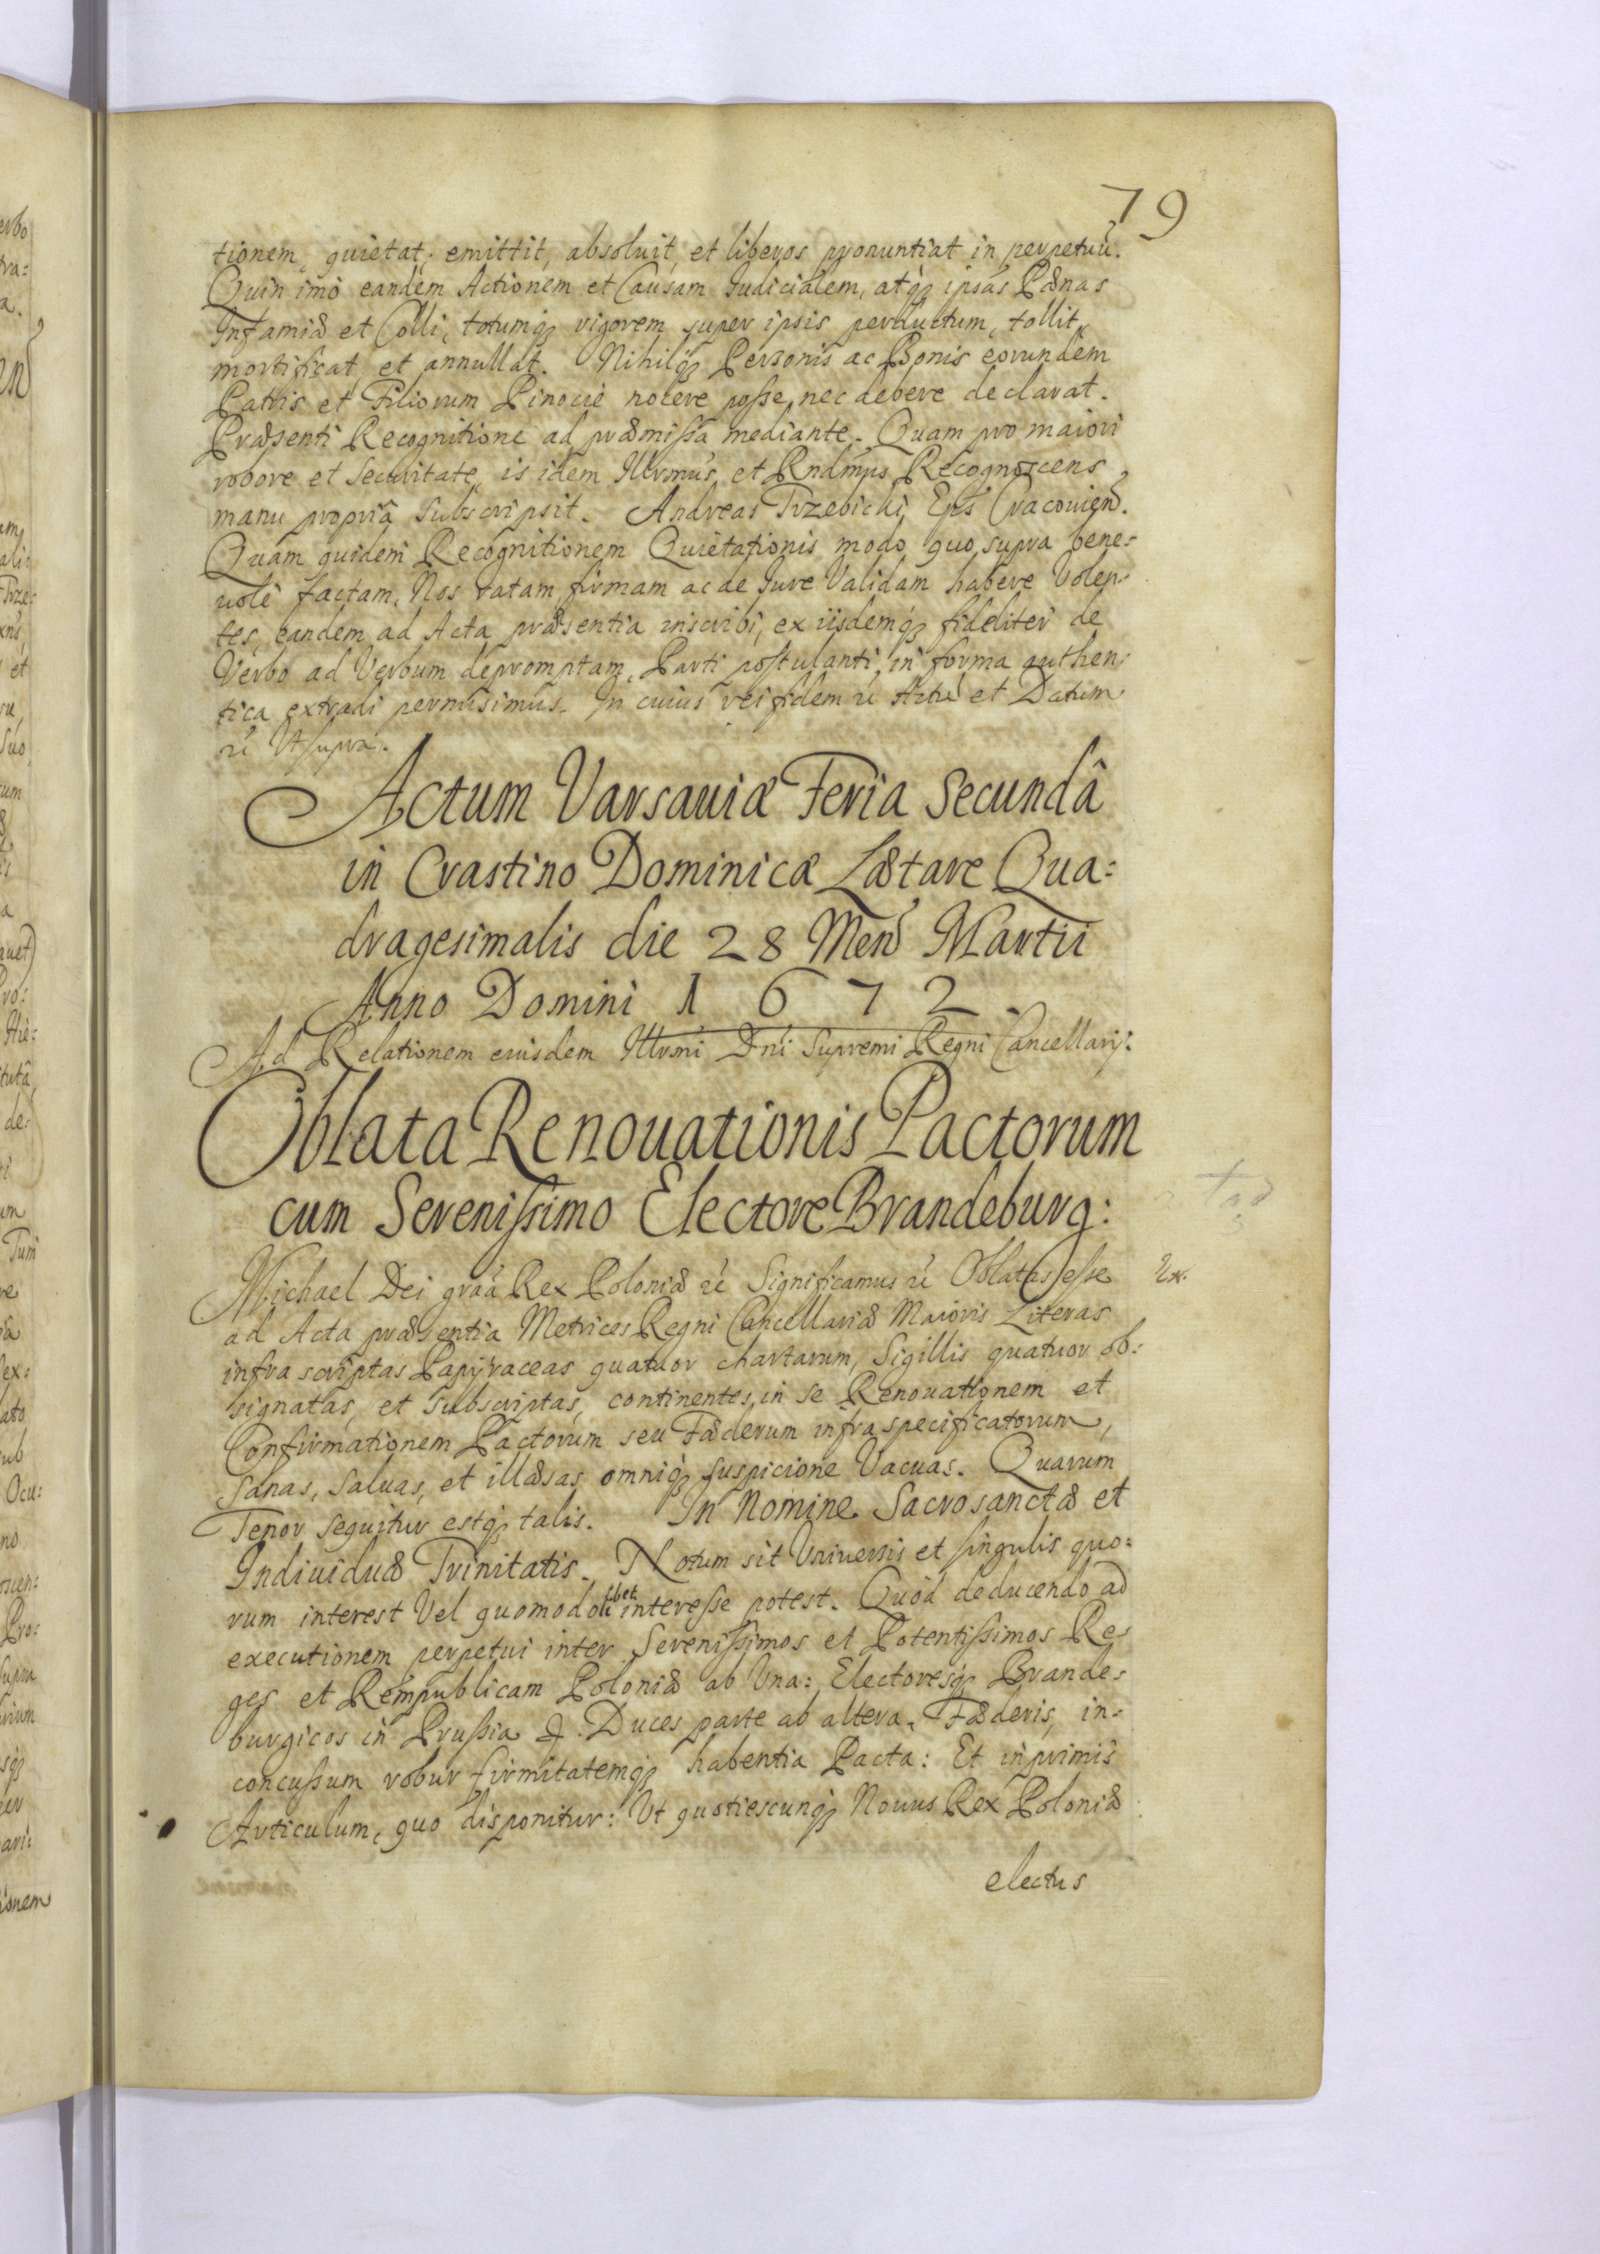 79
tionem, quietat, emittit, absoluit, et liberos pronuntiat in perpetuū.
Quin imò eandem Actionem et Causam Iudicialem, atq̃ ipsas Pænas
Infamiæ et Colli, totumq̃ rigorem super ipsis perductum, tollit,
mortificat, et annullat. Nihilq̃ Personis ac Bonis eorundem
Patris et Filiorum Pinocié nocere posse, nec debere declarat.
Præsenti Recognitione ad præmissa mediante. Quam pro maiori
robore et securitate, is idem Illrmus et Rndmus Recognoscens
manu propriâ subscripsit. Andreas Trzebicki Eps Cracouien.
Quam quidem Recognitionem Quietationis modo quo supra bene-
uolè factam, Nos ratam, firmam ac de Iure Validam habere Volen-
tes, eandem ad Acta præsentia inscribi, ex iisdemq̃ fideliter de
Verbo ad Verbum depromptam, Parti postulanti, in forma authen-
tica extradi permisimus. In cuius rei fidem rc̃ Actū et Datum
rc̃ Ut supra.
Actum Varsauiæ Feria Secundâ
in Crastino Dominicæ Lætare Qua:
dragesimalis die 28 Men Martii
Anno Domini 1672.
Ad Relationem eiusdem Illrmi Dni Supremi Regni Cancellarij:
Oblata Renouationis Pactorum
cum Serenissimo Electore Brandeburg:
Michael Dei graã Rex Poloniæ rc̃ Significamus rc̃ Oblatas esse
ad Acta præsentia Metrices Regni Cancellariæ Maioris Literas
infra scriptas Papÿraceas quatuor chartarum, Sigillis quatuor ob:
signatas, et subscriptas, continentes in se Renouationem et
Confirmationem Pactorum seu Fæderum infraspecificatorum,
sanas, saluas, et illæsas omniq̃ suspicione Vacuas. Quarum
Tenor sequitur estq̃ talis. In Nomine Sacrosanctæ et
Indiuiduæ Trinitatis. Notum sit Uniuersis et singulis quo:
rum interest Vel quomodolibet interesse potest. Quòd deducendo ad
executionem perpetui inter Serenissimos et Potentissimos Re-
ges et Rempublicam Poloniæ ab Una: Electoresq̃ Brande-
burgicos in Prussia & Duces parte ab altera. Fæderis, in-
concussum robur firmitatemq̃ habentia Pacta: Et inprimis
Articulum, quo disponitur: Ut quotiescunq̃ Nouus Rex Poloniæ
electus